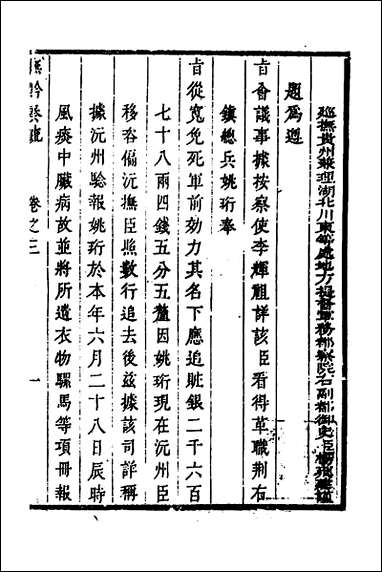 巡撫貴州兼理湖北川東等處地方提督軍務都察院右副都御史臣楊
題爲遵
旨會議事據按察使李輝祖詳該臣看得革職荆右
鎮總兵姚珩奉
旨從寬免死軍前効力其名下應追贓銀二千六百
七十八兩四錢五分五釐因姚珩現在沅州臣
移咨偏沅撫臣照數行追去後兹據該司詳稱
據沅州驗報姚珩於本年六月二十八日辰時
風痰中臟病故並將所遺衣物騾馬等項冊報
撫黔奏疏 卷之三 一